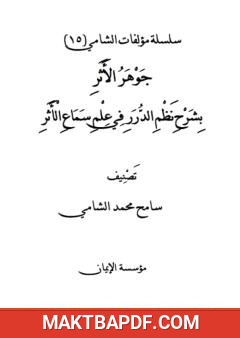 سلسلة مؤلفات الشامي (١٥)
جَوْهَرُ الأَثَرِ
بِشَرْحِ نَظْمِ الدُّرَرِ فِي عِلْمِ سَمَاعِ الْأَثَرِ
تَصْنِيف
سامح محمد الشامي
مؤسسة الإيمان
MAKTBAPDF.COM